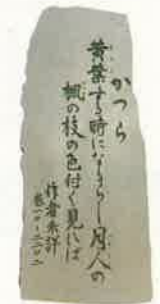 かつら
黄葉する時になるらし月人の
楓の枝の色付く見れば
作者未詳
巻一〇-二二〇二